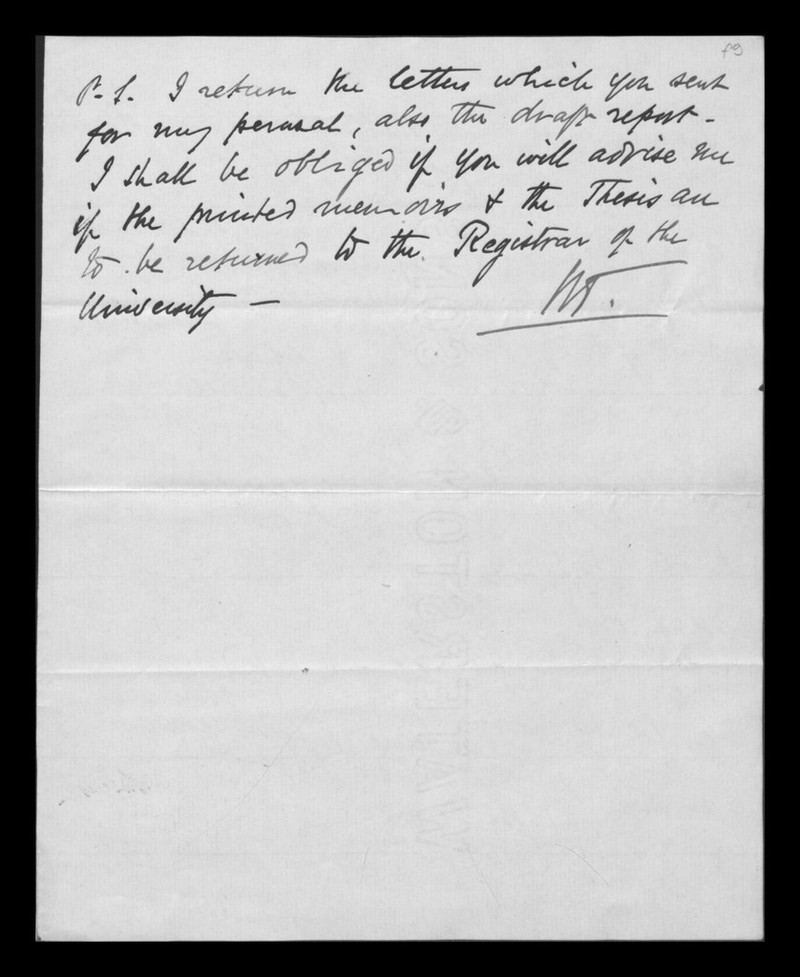 89
P.S. I return the letters which you sent
for my perusal, also the draft report -
I shall be obliged if you will advise me
if the printed memoirs & the Thesis are
to be returned to the Registrar of the
University —